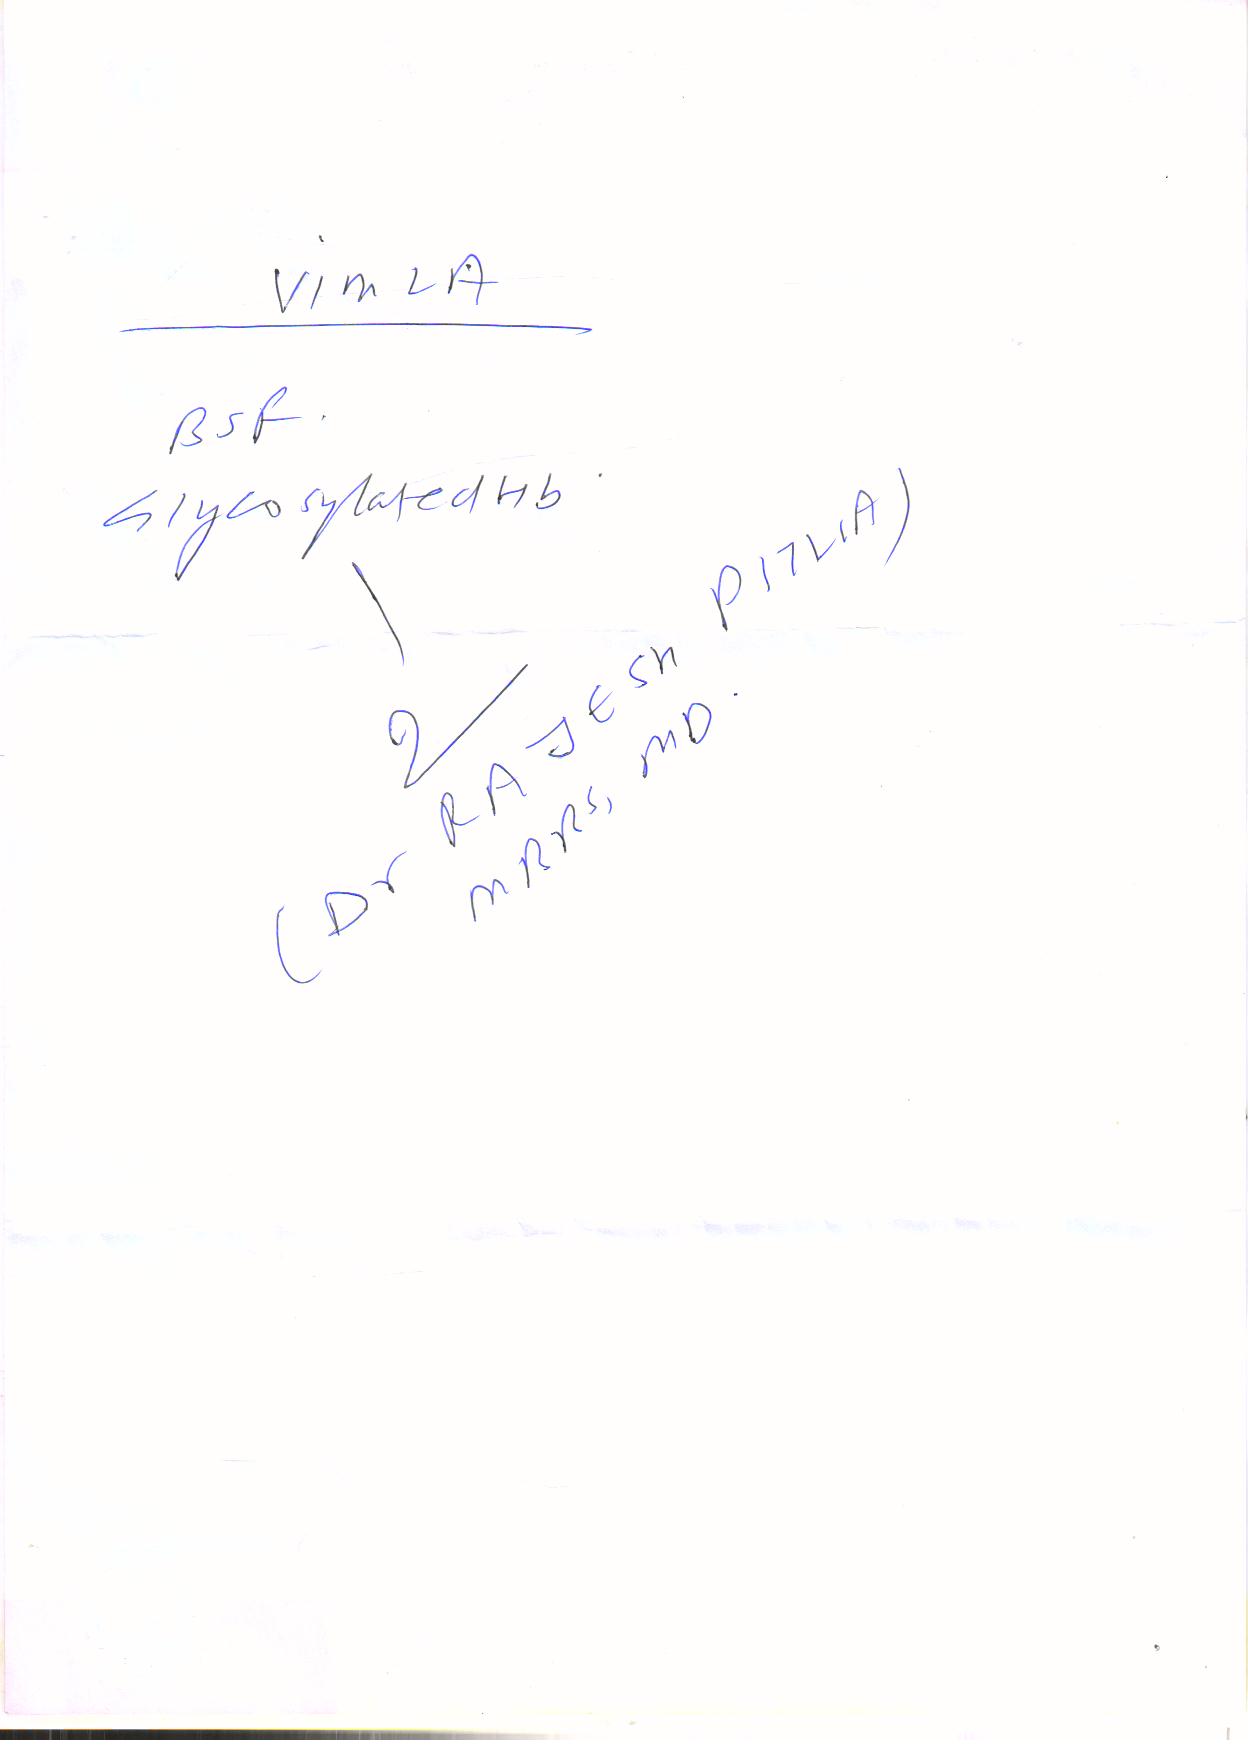 VIMLA
BSF.
Glycosylated Hb.
(Dr RAJESH PITLIA)
MBBS, MD.